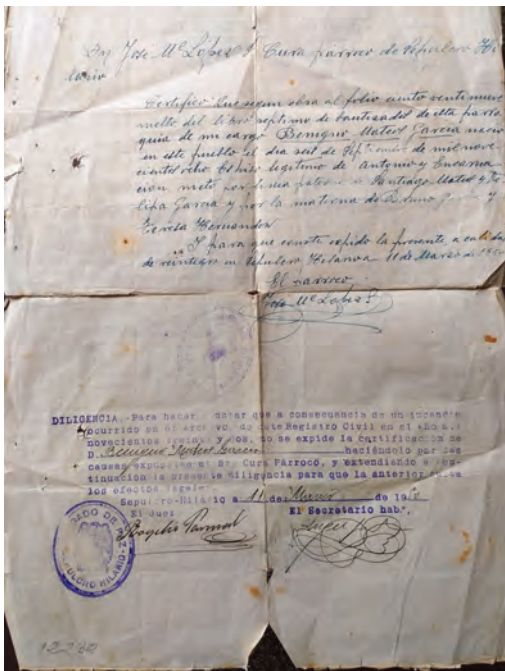 Dn Jose Mª López Cura párroco de Sepulcro Hi
lario
Certifico: Que segun obra al folio ciento veintinueve
vuelto del libro septimo de bautizados de esta parro
quia de mi cargo Benigno Mateos García nacio
en este pueblo el dia seis de Septiembre de mil nove
cientos ocho Es hijo legitimo de Antonio y Encarna
cion nieto por linea paterna de Santiago Mateos y Fe
lipa García y por la materna de y
Teresa Hernandez
Y para que conste expido la presente, a calidad
de reintegro en Sepulcro Hilario a 11 de Marzo de
El párroco
Jose Mª López
DILIGENCIA.-Para hacer constar que a consecuencia de un incendio
ocurrido en el Archivo de este Registro Civil en el año mil
novecientos treinta y dos, no se expide la certificación de
D. Benigno Mateos García haciéndolo por las
causas expuestas el Sr. Cura Párroco, y extendiendo a con-
tinuación la presente diligencia para que la anterior surta
los efectos legales.
Sepulcro-Hilario a 11 de Marzo de 19
El Juez El Secretario hab.,
Rogelio
JUZGADO DE PAZ
SEPULCRO HILARIO